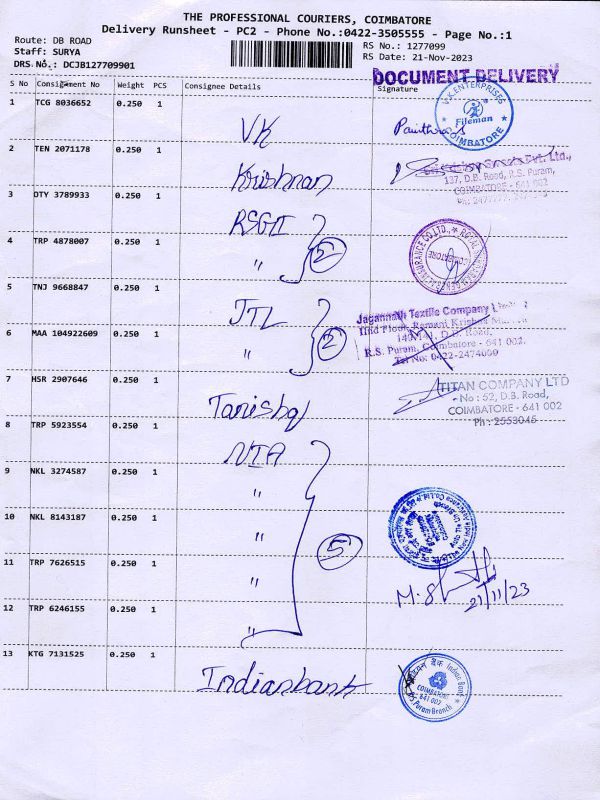 THE PROFESSIONAL COURIERS, COIMBATORE
Delivery Runsheet - PC2 - Phone No.:0422-3505555 - Page No.:1
Route: DB ROAD
Staff: SURYA
DRS No.: DCJB127709901
RS No.: 1277099
RS Date: 21-Nov-2023
DOCUMENT DELIVERY
S No Consignment No Weight PCS Consignee Details Signature
1 TCG 8036652 0.250 1 VK
V.K.ENTERPRISES
Fileman
COIMBATORE
2 TEN 2071178 0.250 1 Krishnan
137, D.B. Road, R.S. Puram,
COIMBATORE - 641 002
3 DTY 3789933 0.250 1 RSGI
4 TRP 4878007 0.250 1 " 2
5 TNJ 9668847 0.250 1 JTL
Jagannath Textile Company
6 MAA 104922609 0.250 1 " 2
R.S. Puram, Coimbatore - 641 002.
Tel No: 0422-2474009
7 HSR 2907646 0.250 1 Tanishq
TITAN COMPANY LTD
No : 52, D.B. Road,
COIMBATORE - 641 002
Ph : 2553045
8 TRP 5923554 0.250 1 NIA
9 NKL 3274587 0.250 1 "
10 NKL 8143187 0.250 1 " 5
11 TRP 7626515 0.250 1 "
21/11/23
12 TRP 6246155 0.250 1 "
13 KTG 7131525 0.250 1 Indianbank
इंडियन बैंक Indian Bank
COIMBATORE
641 002
RS Puram Branch